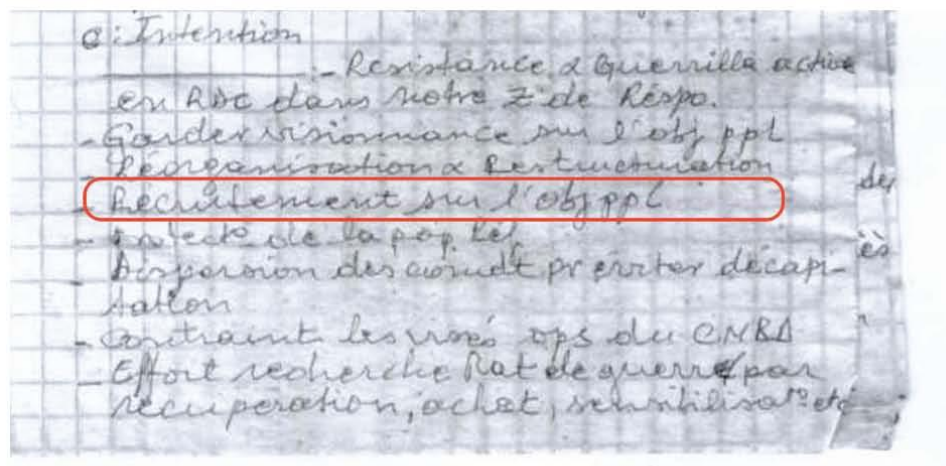 c: Intention
- Resistance & Guerrilla active
en RDC dans notre Z de Respo.
- Garder visionnance sur l'obj ppl
- Réorganisation & Restructuration
- Recrutement sur l'obj ppl
- de la pop
- Dispersion des comdt pr eviter décapi-
tation
- Contraint les ops du CNRD
- Effort recherche Mat de guerre par
récupération, achat, sensibilisa° etc